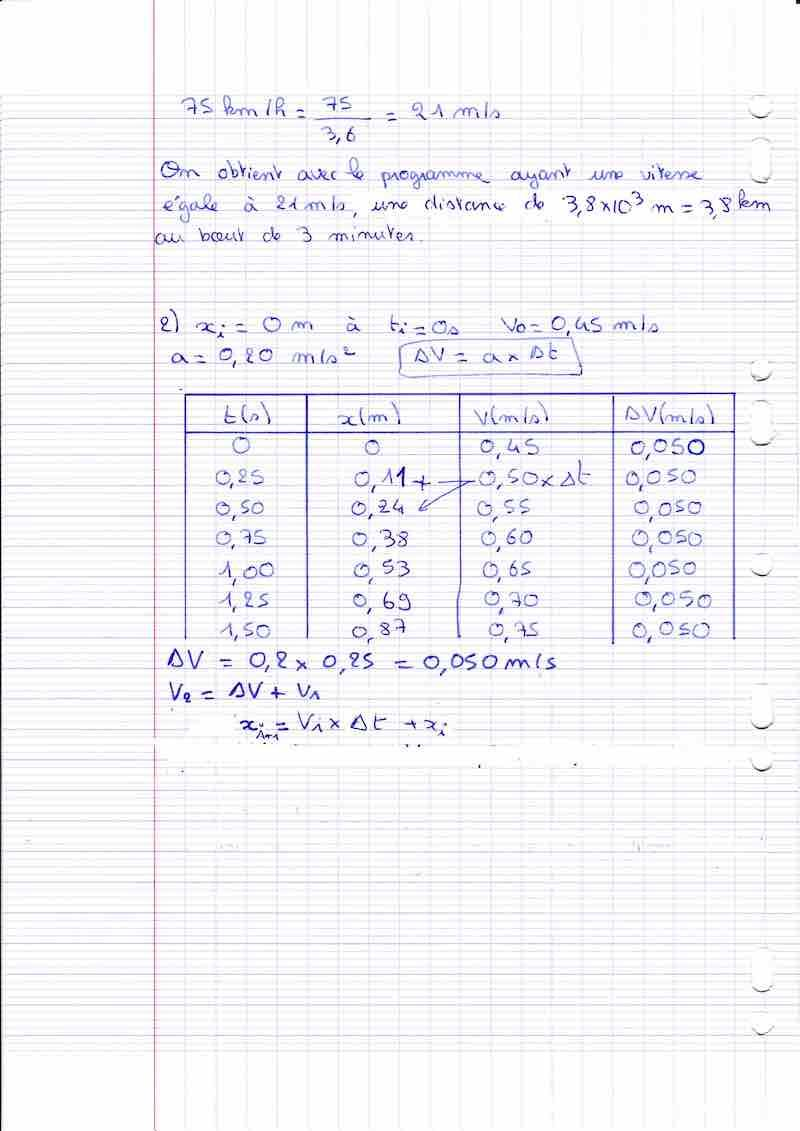 75 km/h = 75/3,6 = 21 m/s
On obtient avec le programme ayant une vitesse
égale à 21 m/s, une distance de 3,8×10³ m = 3,8 km
au bout de 3 minutes.
2) xi = 0 m à ti = 0s V0 = 0,45 m/s
a = 0,20 m/s² ΔV = a × Δt
t(s) x(m) V(m/s) ΔV(m/s)
0 0 0,45 0,050
0,25 0,11 + 0,50 × Δt 0,050
0,50 0,24 0,55 0,050
0,75 0,38 0,60 0,050
1,00 0,53 0,65 0,050
1,25 0,69 0,70 0,050
1,50 0,87 0,75 0,050
ΔV = 0,2 × 0,25 = 0,050 m/s
V2 = ΔV + V1
xi+1 = Vi × Δt + xi